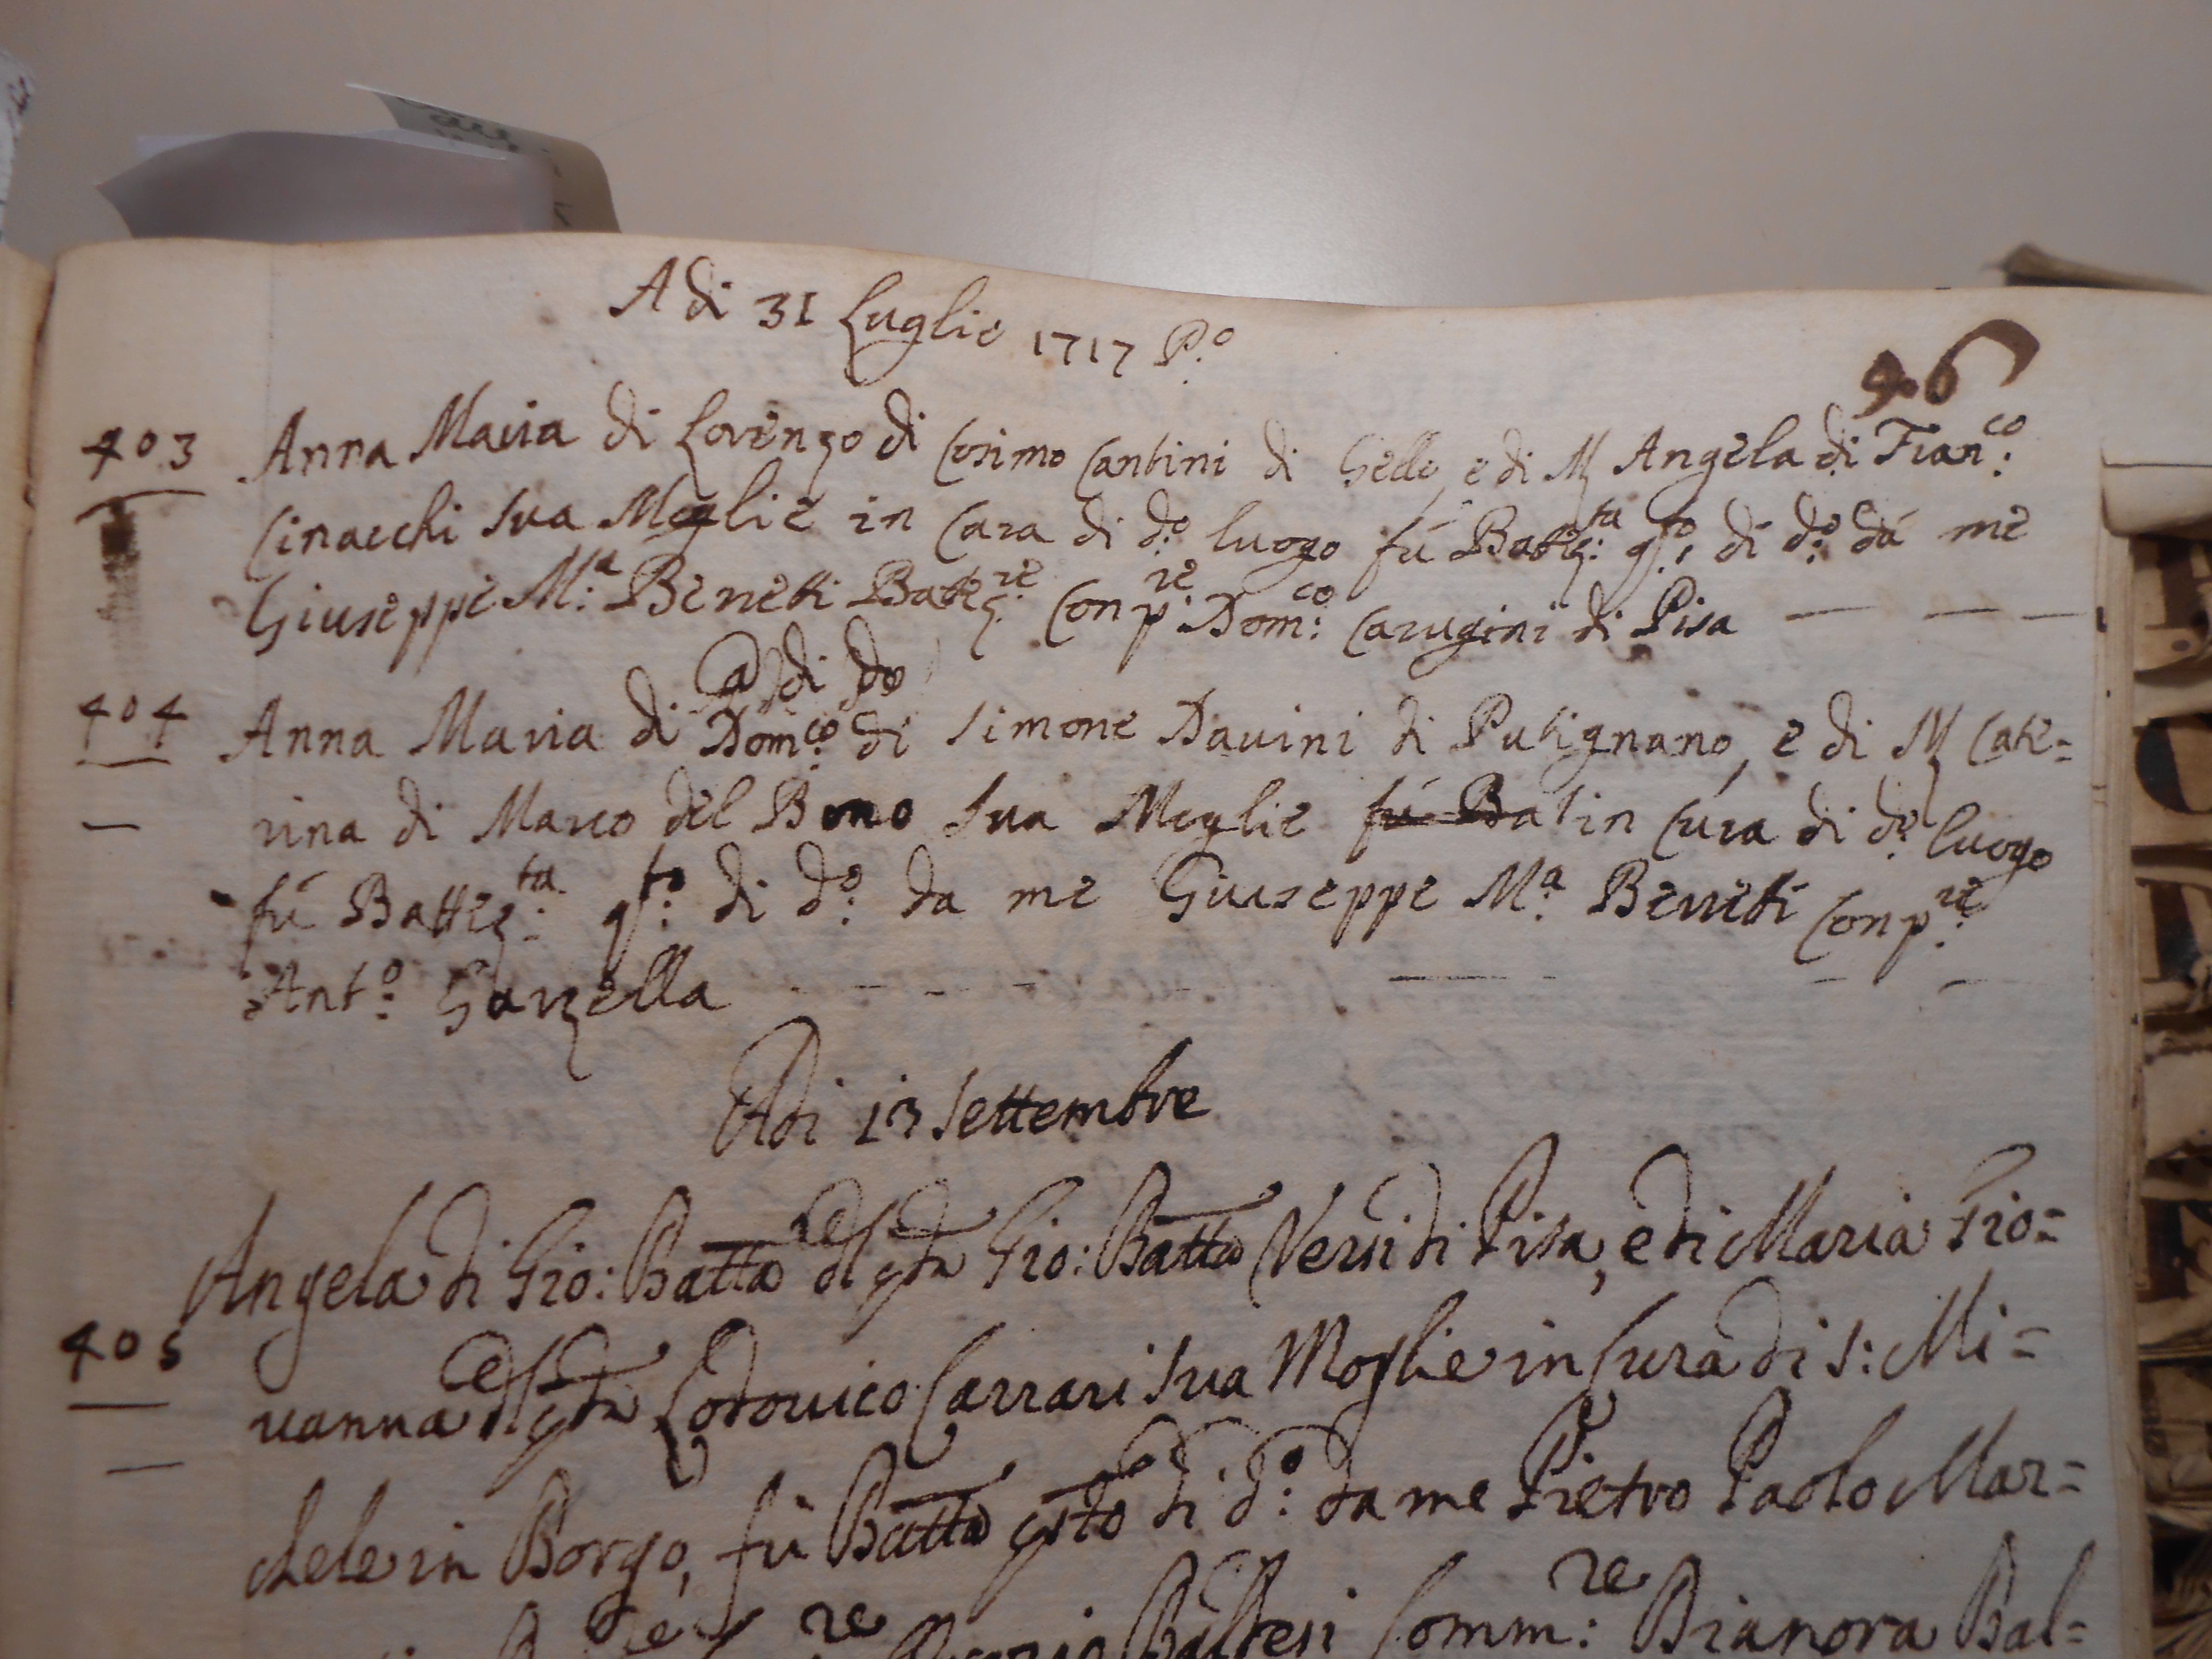 A di 31 Luglio 1717 P.º
406
403 Anna Maria di Lorenzo di Cosimo Cantini di Gello, e di M Angela di Fran:co
Cinacchi sua Moglie in Cura di d:o luogo fú Battez:ta q:to di d:o dá me
Giuseppe M:a Beneti Battez:re Con p:re Dom:co Carugini di Pisa
A di do
404 Anna Maria di Dom:co di Simone Davini di Putignano, e di M Cate=
rina di Marco del Bono sua Moglie fú Bat in Cura di d:o luogo
fú Battez:ta q:to di d:o da me Giuseppe M:a Beneti Con p:re
Ant:o Garzella
Adi 13 Settembre
Angela di Gio: Batta del qdm Gio: Batta Nersi di Pisa, e di Maria Gio=
405
vanna del qdm Lodovico Carrari sua Moglie in Cura di S: Mi=
chele in Borgo, fú Batta qsto di d:o da me Pietro Paolo Mar=
Comm:re Bianora Bal=